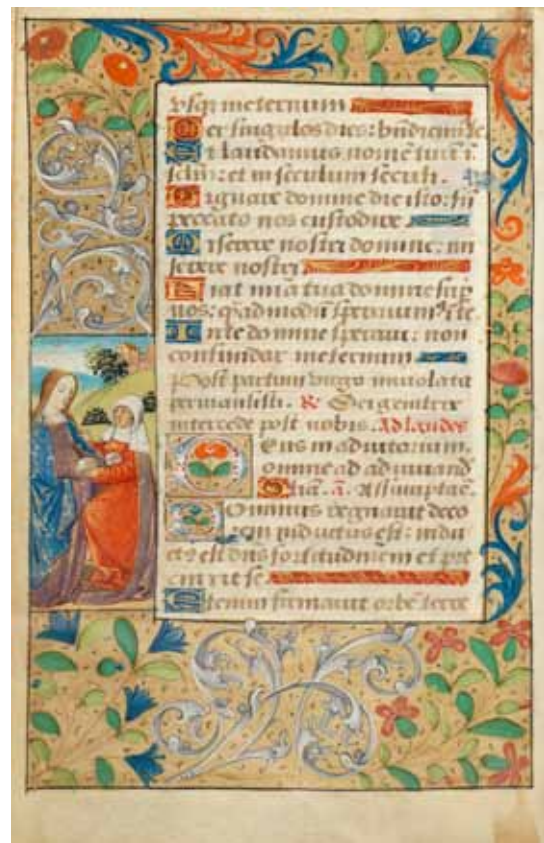 vsq; in eternum
Per singulos dies: bn̄dicim9 te
Et laudamus nomē tuū ī
sclm: et in seculum seculi.
Dignare domine die isto: sn̄
peccato nos custodire
Miserere nostri domine: mi
serere nostri
Fiat mīa tua domine sup
nos: q̄admodū sperauim9 ī te
In te domine speraui: non
confundar in eternum
Post partum virgo inuiolata
permansisti. R̃ Dei genitrix
intercede post nobis. Ad laudes
Deus in adiutorium.
Domine ad adiuuand
Gliā. ā. Assumpta ē.
Dominus regnauit deco
rem indutus est: indu
tus est dn̄s fortitudinem et pre
cinxit se
Etenim firmauit orbē terre